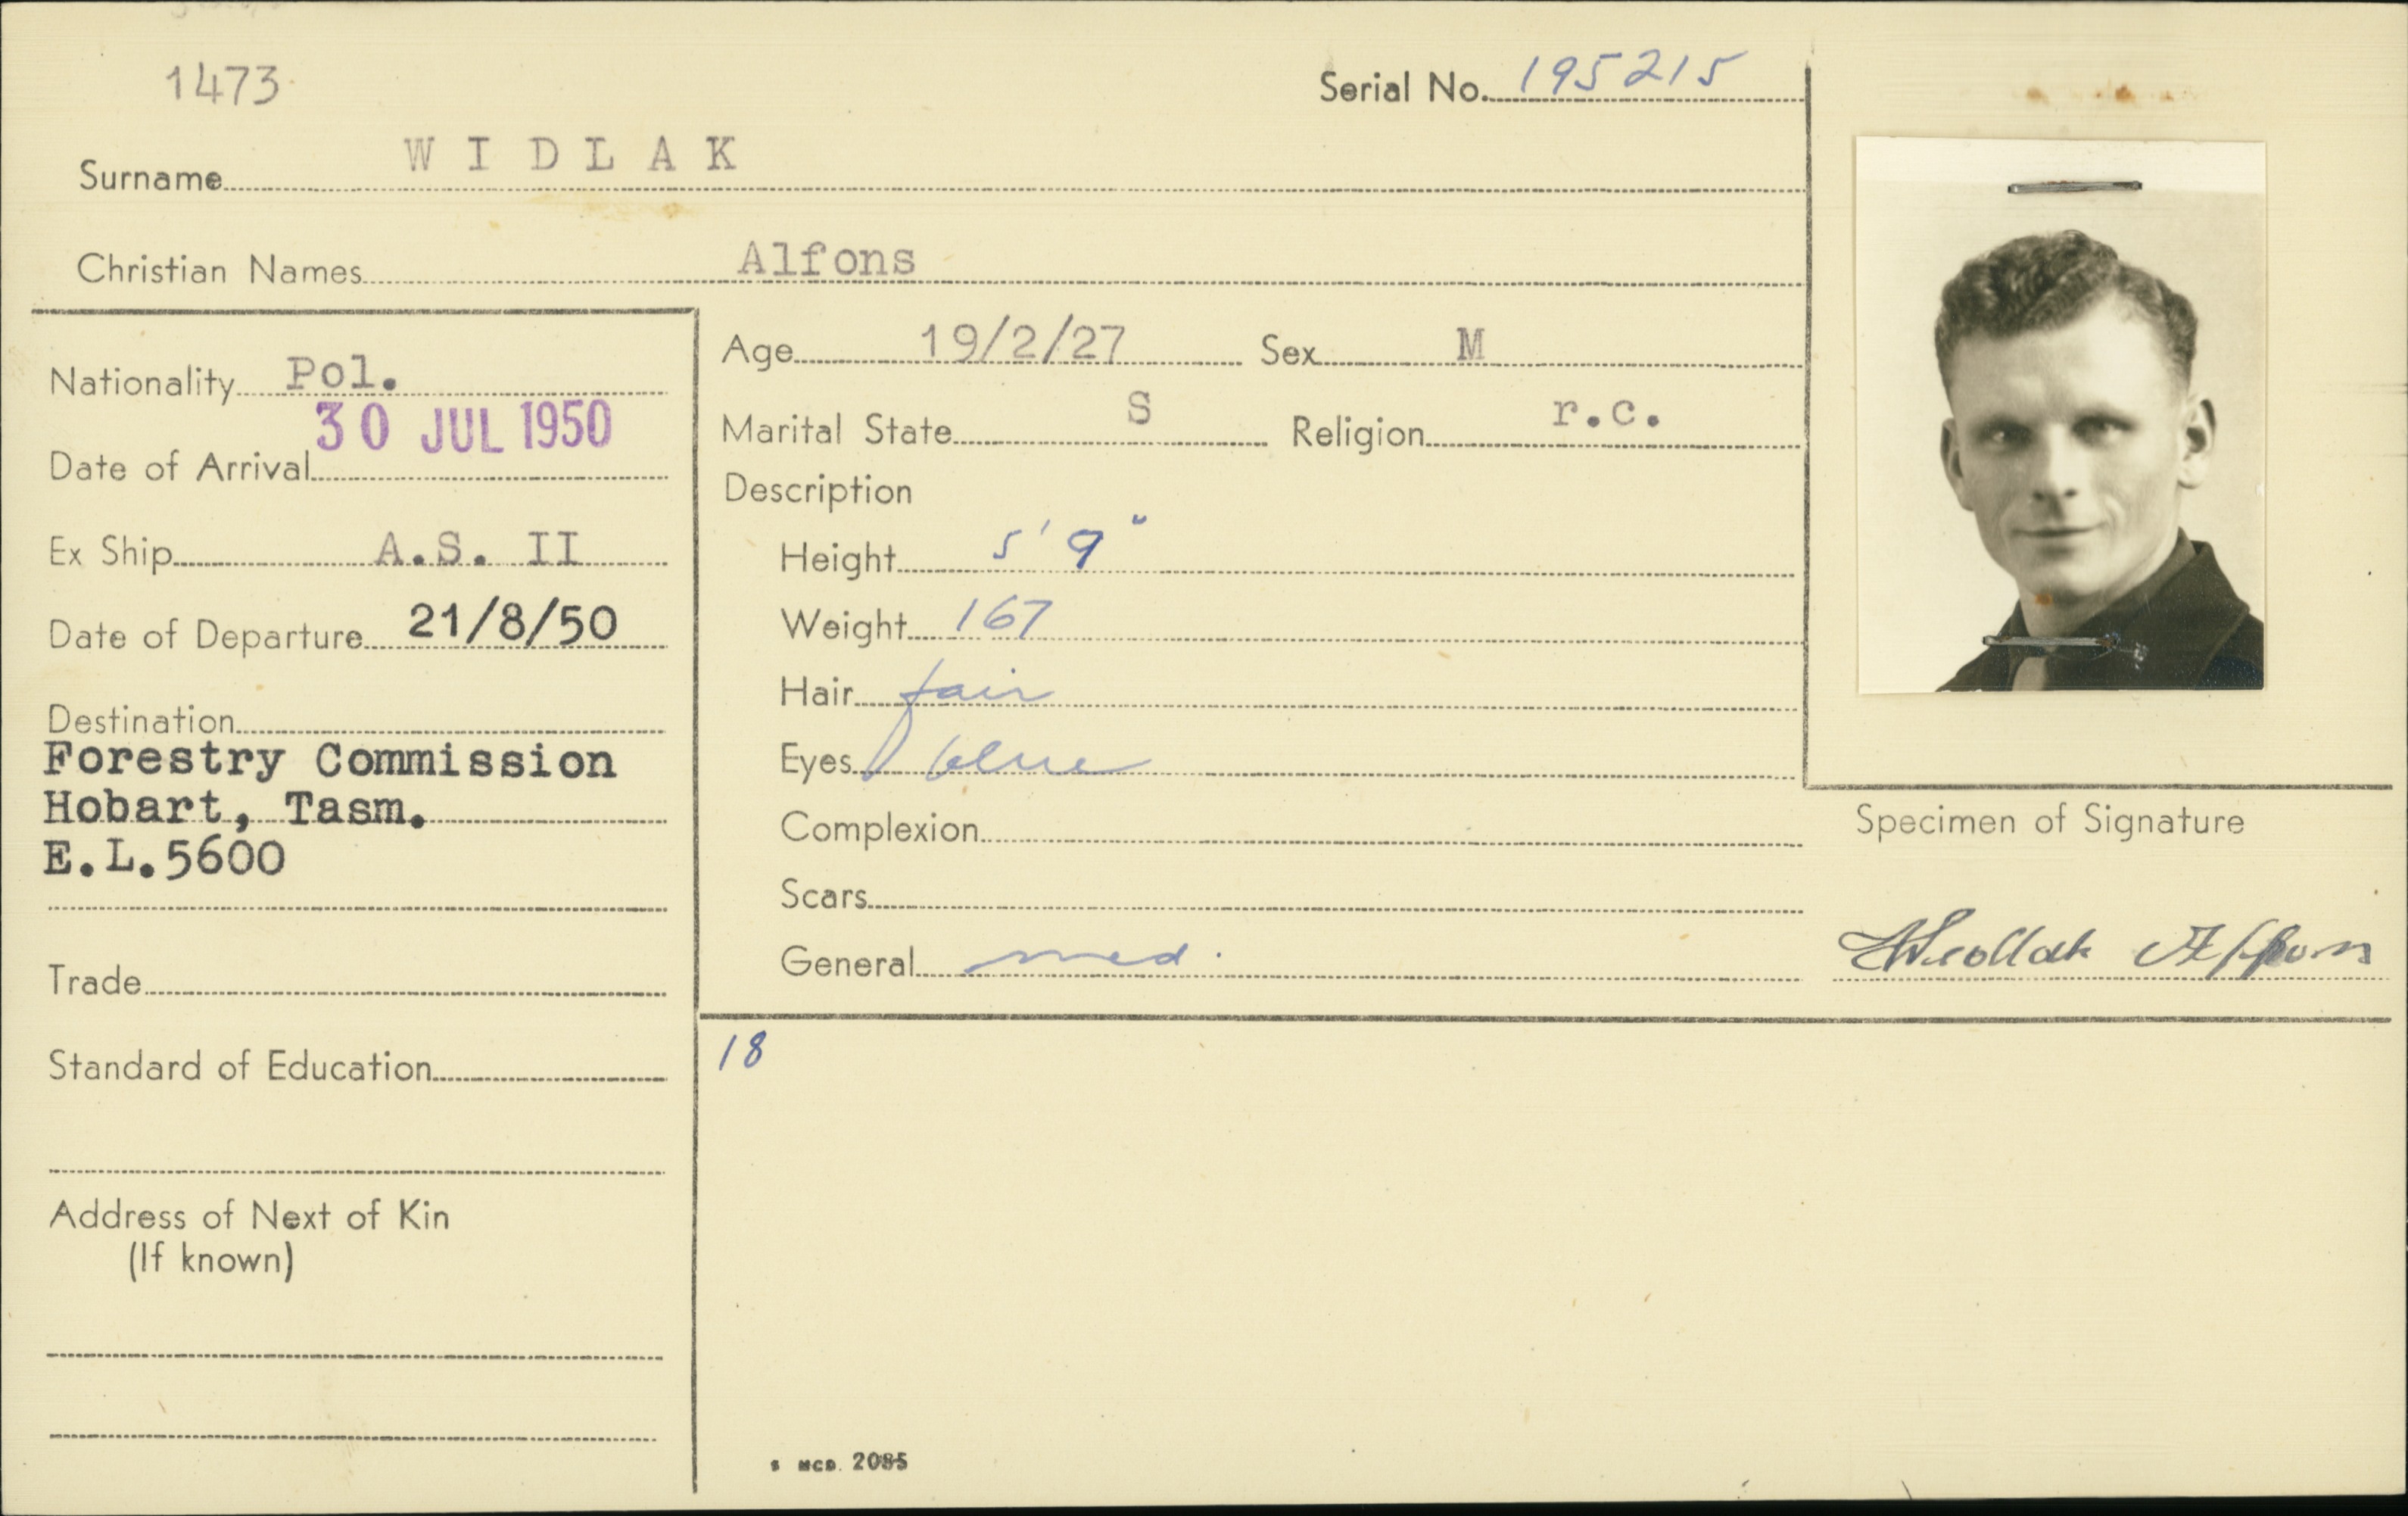 1473
Serial No. 195215
Surname W I D L A K
Christian Names Alfons
Nationality Pol.
Date of Arrival 30 JUL 1950
Ex Ship A.S. II
Date of Departure 21/8/50
Destination
Forestry Commission
Hobart, Tasm.
E.L.5600
Trade
Standard of Education
Address of Next of Kin
(If known)
Age 19/2/27 Sex M
Marital State S Religion r.c.
Description
Height 5' 9"
Weight 167
Hair fair
Eyes blue
Complexion
Scars
General med.
18
S MCD. 2085
Specimen of Signature
Widlak Alfons